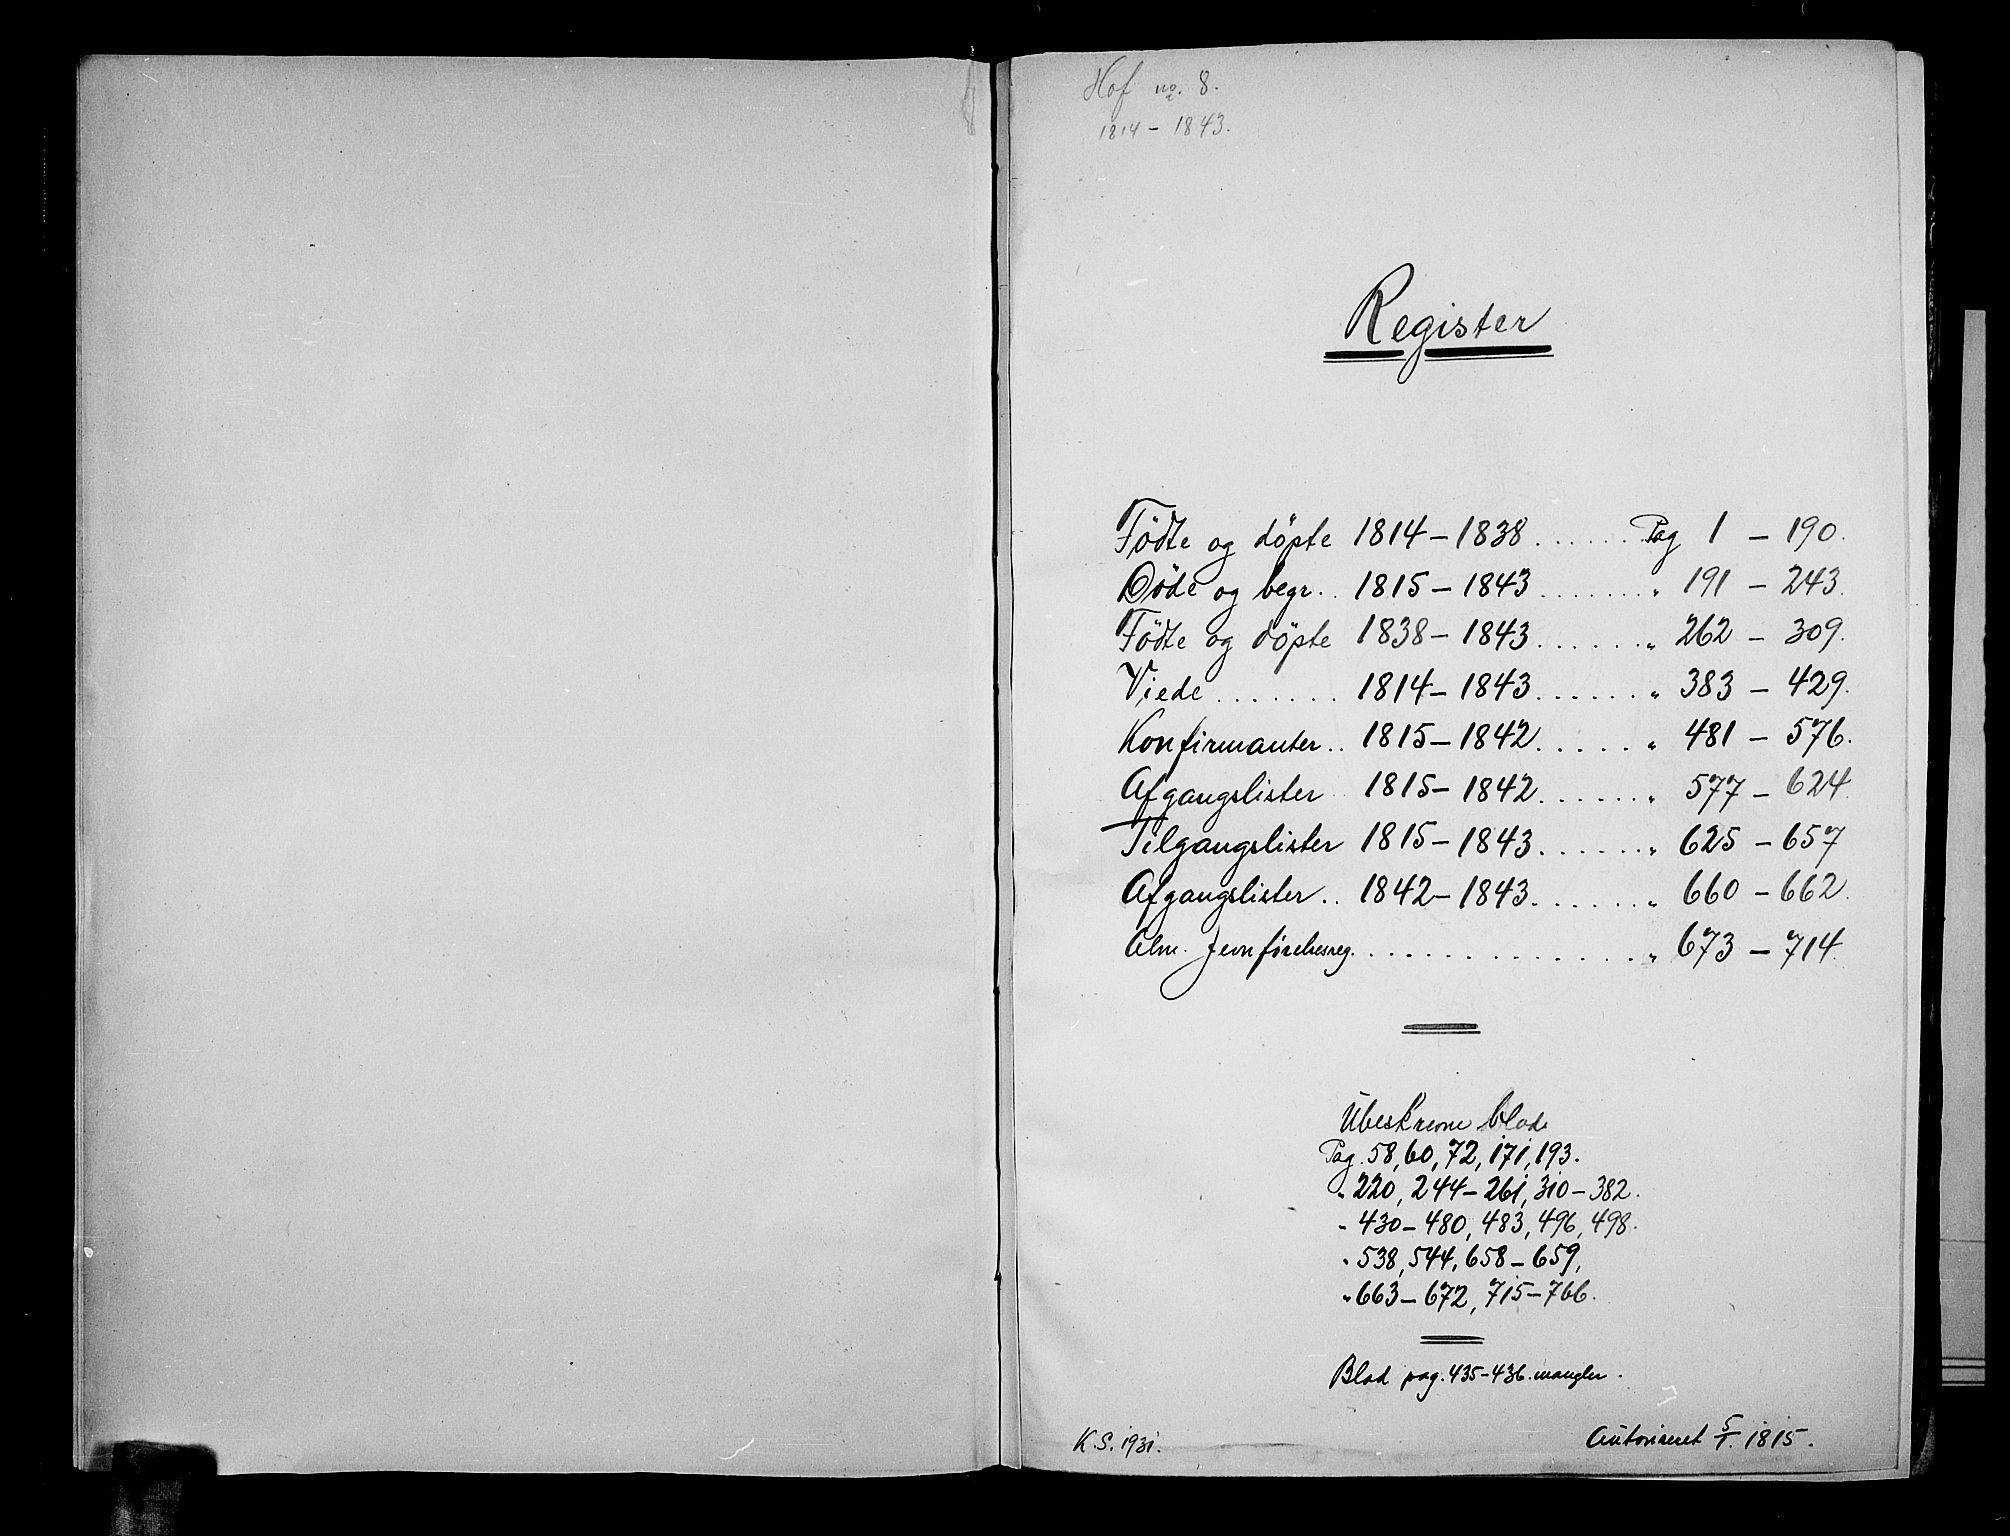 Hof no. 8.
1814 - 1843.
Register
Födte og döpte 1814 - 1838 ...... Pag 1 - 190.
Döde og begr. .. 1815 - 1843 ....... " 191 - 243.
Födte og döpte 1838 - 1843 ...... " 262 - 309.
Viede ....... 1814 - 1843 ...... " 383 - 429.
Konfirmanter .. 1815 - 1842 ...... " 481 - 576.
Afgangslister 1815 - 1842 ...... " 577 - 624.
Tilgangslister 1815 - 1843 ...... " 625 - 657
Afgangslister .. 1842 - 1843 ...... " 660 - 662.
Alm. Jevnførelsesreg. .............. " 673 - 714.
Ubeskrevne blade
Pag. 58, 60, 72, 171, 193.
" 220, 244 - 261, 310 - 382.
" 430 - 480, 483, 496, 498.
" 538, 544, 658 - 659,
" 663 - 672, 715 - 766.
Blad pag. 435 - 436 mangler.
K.S. 1931.
Autoriseret 5/1. 1815.